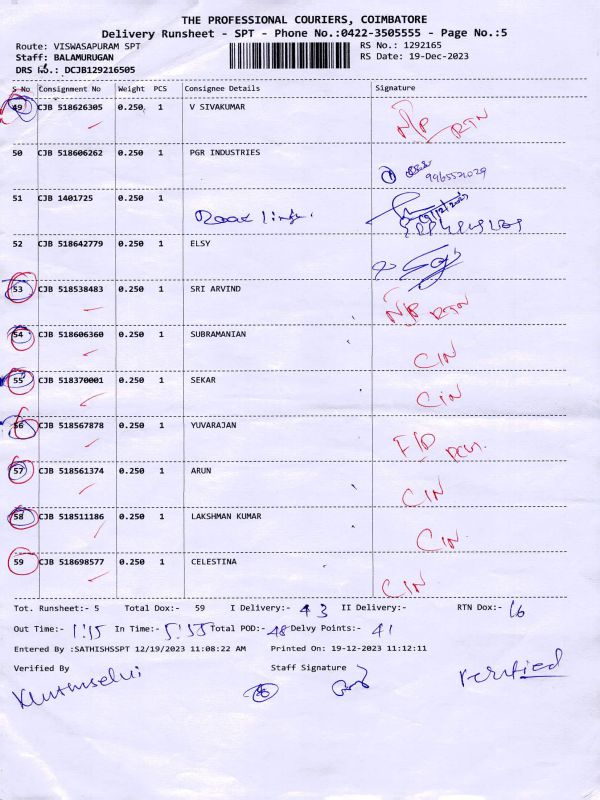 THE PROFESSIONAL COURIERS, COIMBATORE
Delivery Runsheet - SPT - Phone No.:0422-3505555 - Page No.:5
Route: VISWASAPURAM SPT RS No.: 1292165
Staff: BALAMURUGAN RS Date: 19-Dec-2023
DRS No.: DCJB129216505
S No Consignment No Weight PCS Consignee Details Signature
49 CJB 518626305 0.250 1 V SIVAKUMAR N/P RTN
50 CJB 518606262 0.250 1 PGR INDUSTRIES
9965521029
51 CJB 1401725 0.250 1
52 CJB 518642779 0.250 1 ELSY
53 CJB 518538483 0.250 1 SRI ARVIND N/P RTN
54 CJB 518606360 0.250 1 SUBRAMANIAN CIN
55 CJB 518370001 0.250 1 SEKAR CIN
56 CJB 518567878 0.250 1 YUVARAJAN
57 CJB 518561374 0.250 1 ARUN CIN
58 CJB 518511186 0.250 1 LAKSHMAN KUMAR CIN
59 CJB 518698577 0.250 1 CELESTINA CIN
Tot. Runsheet:- 5 Total Dox:- 59 I Delivery:- 43 II Delivery:- RTN Dox:- 16
Out Time:- 1:15 In Time:- 5:55 Total POD:- 48 Delvy Points:- 41
Entered By :SATHISHSSPT 12/19/2023 11:08:22 AM Printed On: 19-12-2023 11:12:11
Verified By Staff Signature verified